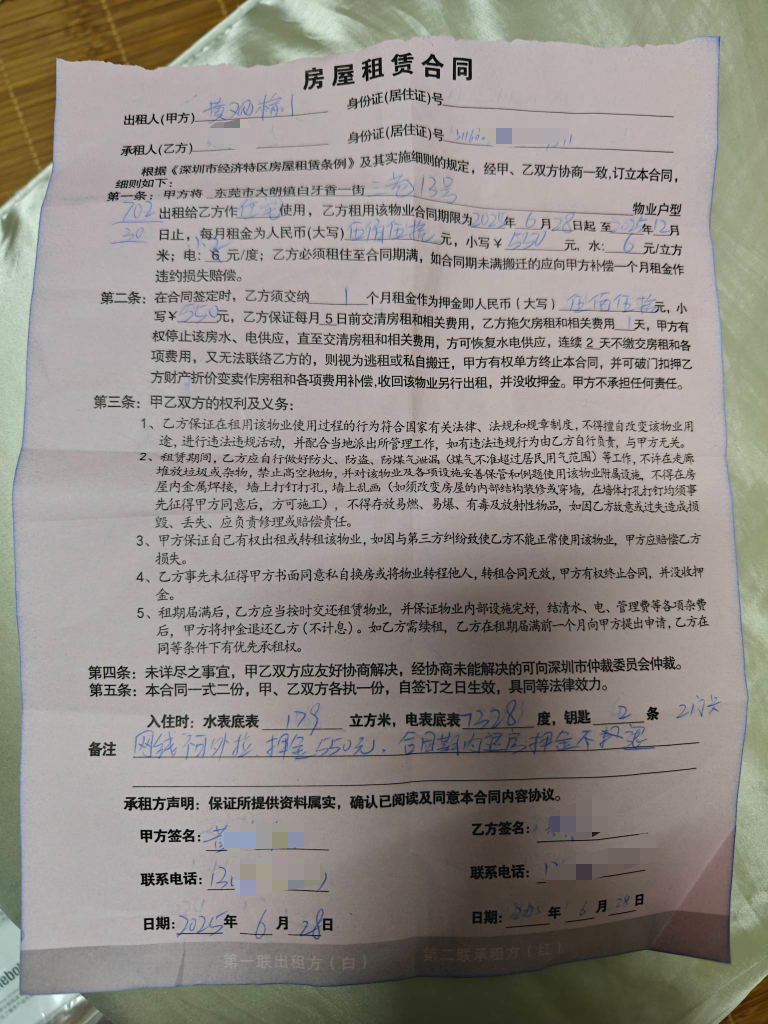 房屋租赁合同
出租人(甲方) 身份证(居住证)号
承租人(乙方) 身份证(居住证)号
根据《深圳市经济特区房屋租赁条例》及其实施细则的规定，经甲、乙双方协商一致,订立本合同，
细则如下：
第一条：甲方将 东莞市大朗镇白牙香一街 三巷13号 物业户型
702 出租给乙方作住宅使用，乙方租用该物业合同期限为2025年 6月28日起 至2025年12月
30日止，每月租金为人民币(大写)伍佰伍拾元，小写￥550元，水：6元/立方
米；电：元/度；乙方必须租住至合同期满，如合同期未满搬迁的应向甲方补偿一个月租金作
违约损失赔偿。
第二条：在合同签定时，乙方须交纳 1 个月租金作为押金即人民币（大写）伍佰伍拾元，小
写￥550元，乙方保证每月5日前交清房租和相关费用，乙方拖欠房租和相关费用1天，甲方有
权停止该房水、电供应，直至交清房租和相关费用，方可恢复水电供应，连续2天不缴交房租和各
项费用，又无法联络乙方的，则视为逃租或私自搬迁，甲方有权单方终止本合同，并可破门扣押乙
方财产折价变卖作房租和各项费用补偿,收回该物业另行出租，并没收押金。甲方不承担任何责任。
第三条：甲乙双方的权利及义务：
1、乙方保证在租用该物业使用过程的行为符合国家有关法律、法规和规章制度，不得擅自改变该物业用
途，进行违法违规活动，并配合当地派出所管理工作，如有违法违规行为由乙方自行负责，与甲方无关。
2、租赁期间，乙方应自行做好防火、防盗、防煤气泄漏（煤气不准超过居民用气范围）等工作，不许在走廊
堆放垃圾或杂物，禁止高空抛物，并对该物业及各项设施妥善保管和例题使用该物业附属设施，不得在房
屋内金属焊接，墙上打钉打孔，墙上乱画（如须改变房屋的内部结构装修或穿墙，在墙体打孔打钉均须事
先征得甲方同意后，方可施工），不得存放易燃、易爆、有毒及放射性物品，如因乙方故意或过失造成损
毁、丢失、应负责修理或赔偿责任。
3、甲方保证自己有权出租或转租该物业，如因与第三方纠纷致使乙方不能正常使用该物业，甲方应赔偿乙方
损失。
4、乙方事先未征得甲方书面同意私自换房或将物业转程他人，转租合同无效，甲方有权终止合同，并没收押
金。
5、租期届满后，乙方应当按时交还租赁物业，并保证物业内部设施完好，结清水、电、管理费等各项杂费
后，甲方将押金退还乙方（不计息）。如乙方需续租，乙方在租期届满前一个月向甲方提出申请，乙方在
同等条件下有优先承租权。
第四条：未详尽之事宜，甲乙双方应友好协商解决，经协商未能解决的可向深圳市仲裁委员会仲裁。
第五条：本合同一式二份，甲、乙双方各执一份，自签订之日生效，具同等法律效力。
入住时：水表底表 179 立方米，电表底表7328度，钥匙 2 条
备注 网线 押金550元，合同期内退房押金不退
承租方声明：保证所提供资料属实，确认已阅读及同意本合同内容协议。
甲方签名： 乙方签名：
联系电话： 联系电话：
日期：2025年 6 月 28日 日期：2025年 6 月 28日
第一联出租方（白） 第二联承租方（红）